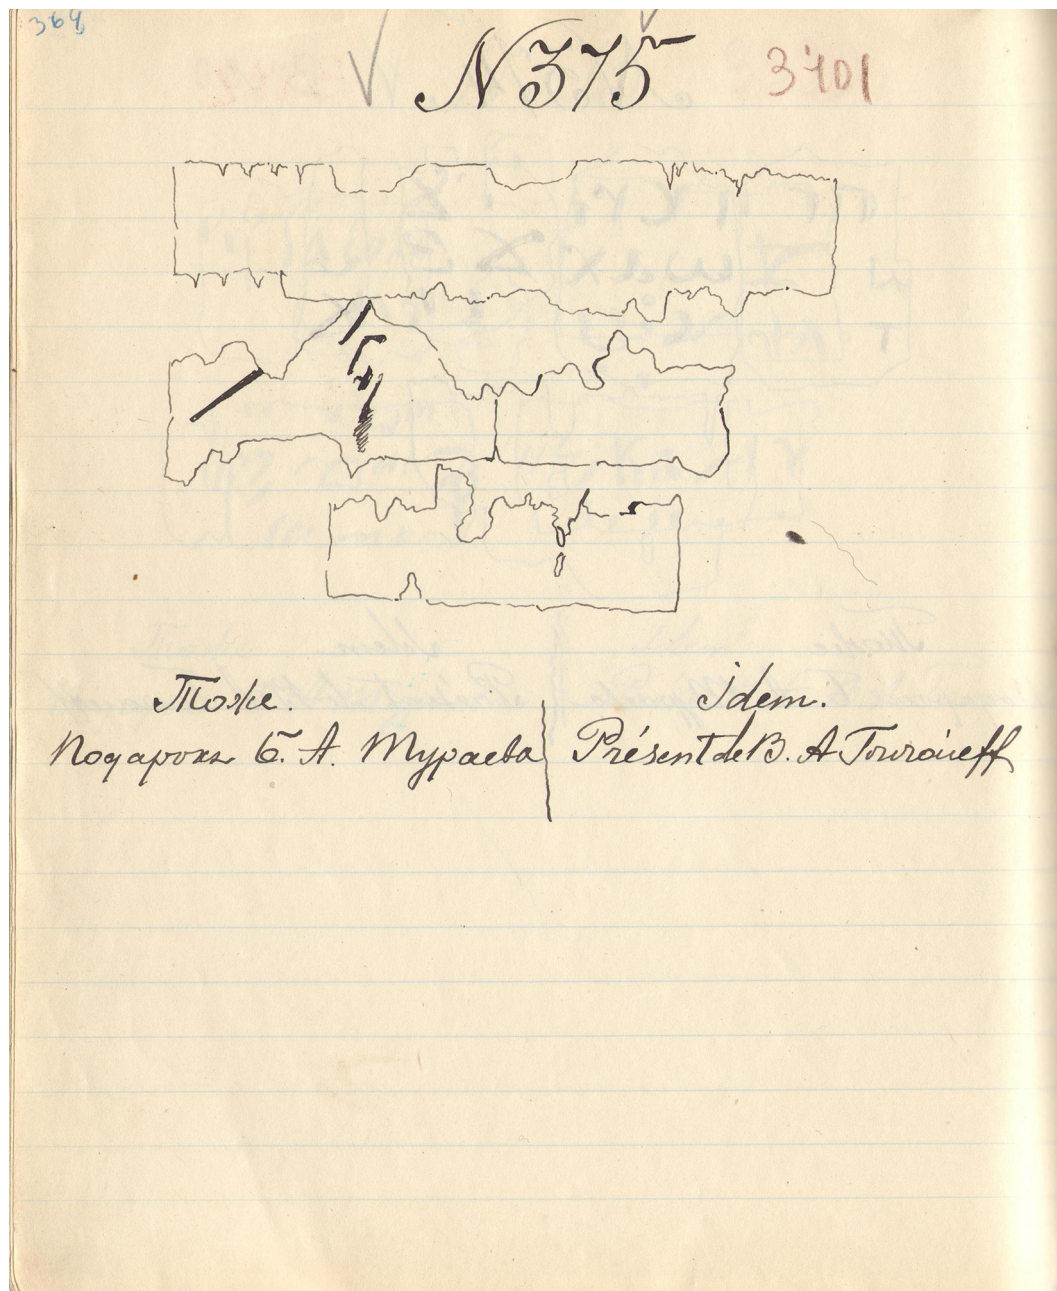 364
N 375
3401
Тоже.
Подарокъ Б. А. Тураева
Idem.
Présent de B. A Touraieff